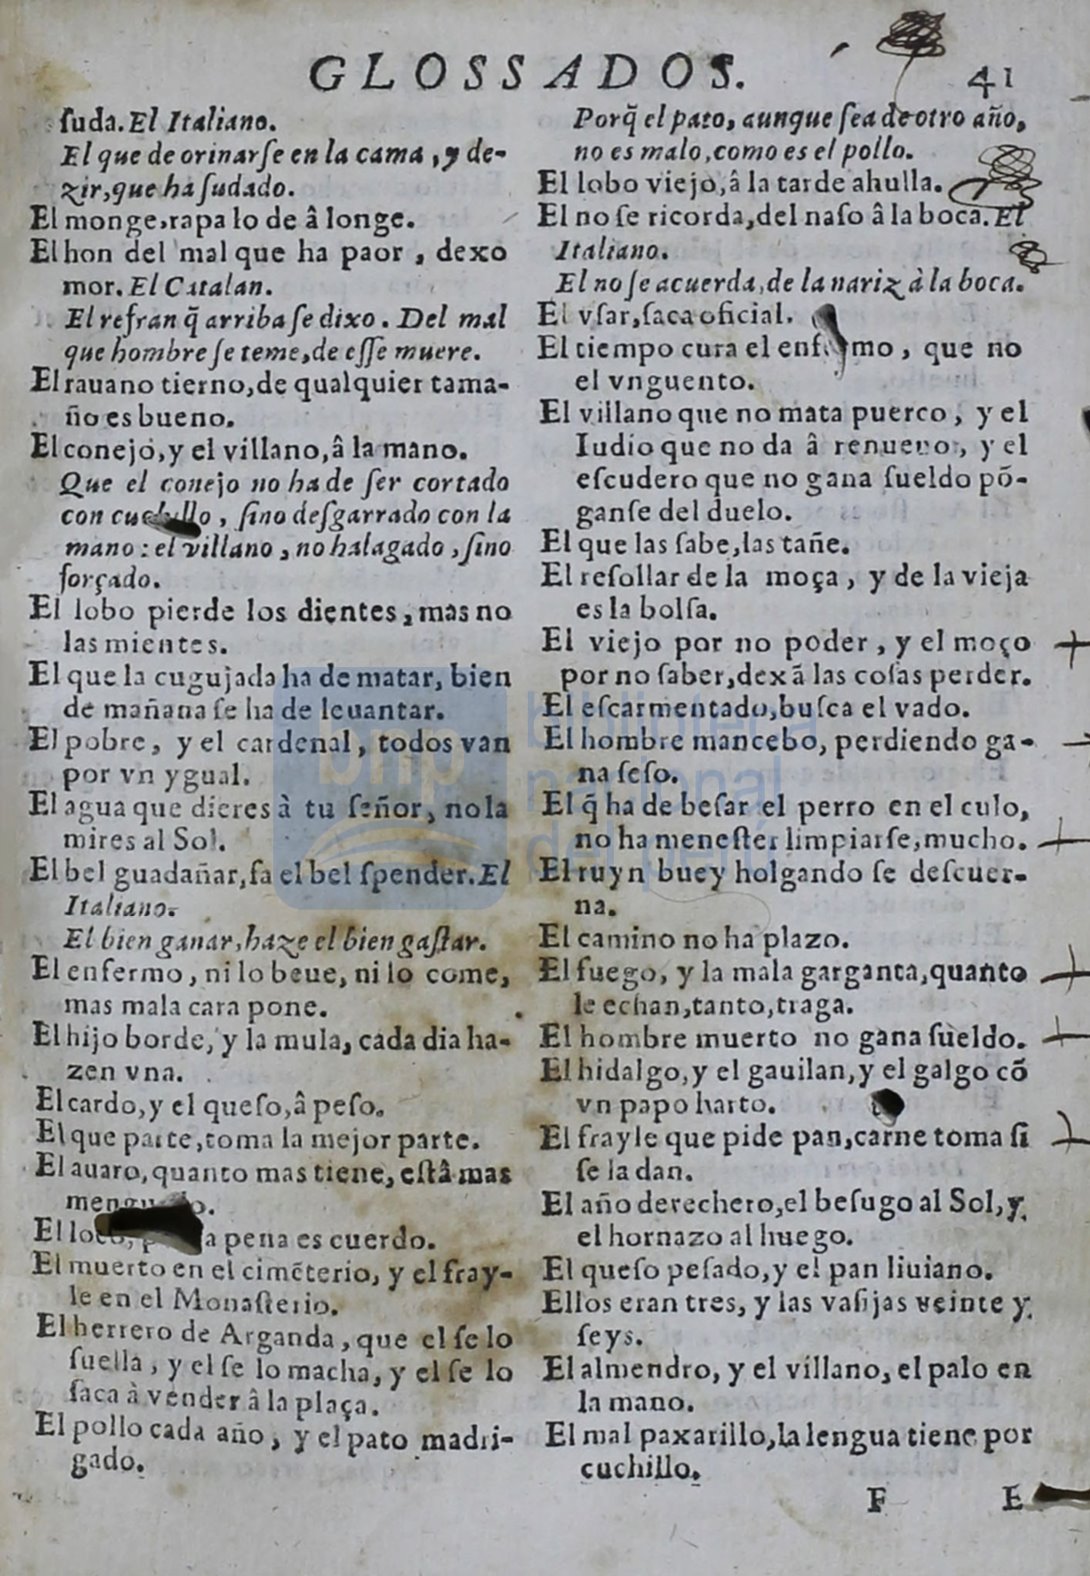 GLOSSADOS. 41
ſuda. El Italiano.
El que de orinarſe en la cama, y de-
zir, que ha ſudado.
El monge, rapa lo de â longe.
El hon del mal que ha paor, dexo
mor. El Catalan.
El refran q̃ arriba ſe dixo. Del mal
que hombre ſe teme, de eſſe muere.
El rauano tierno, de qualquier tama-
ño es bueno.
El conejo, y el villano, â la mano.
Que el conejo no ha de ſer cortado
con cuchillo, ſino deſgarrado con la
mano: el villano, no halagado, ſino
forçado.
El lobo pierde los dientes, mas no
las mientes.
El que la cugujada ha de matar, bien
de mañana ſe ha de leuantar.
El pobre, y el cardenal, todos van
por vn ygual.
El agua que dieres à tu ſeñor, no la
mires al Sol.
El bel guadañar, fa el bel ſpender. El
Italiano.
El bien ganar, haze el bien gaſtar.
El enfermo, ni lo beue, ni lo come,
mas mala cara pone.
El hijo borde, y la mula, cada dia ha-
zen vna.
El cardo, y el queſo, â peſo.
El que parte, toma la mejor parte.
El auaro, quanto mas tiene, eſtâ mas
menguado.
El loco, a pena es cuerdo.
El muerto en el cimẽterio, y el fray-
le en el Monaſterio.
El herrero de Arganda, que el ſe lo
fuella, y el ſe lo macha, y el ſe lo
ſaca à vender â la plaça.
El pollo cada año, y el pato madri-
gado.
Porq̃ el pato, aunque ſea de otro año,
no es malo, como es el pollo.
El lobo viejo, â la tarde ahulla.
El no ſe ricorda, del naſo â la boca. El
Italiano.
El no ſe acuerda, de la nariz à la boca.
El vſar, ſaca oficial.
El tiempo cura el enfermo, que no
el vnguento.
El villano que no mata puerco, y el
Iudio que no da â renueuo, y el
eſcudero que no gana ſueldo põ-
ganſe del duelo.
El que las ſabe, las tañe.
El reſollar de la moça, y de la vieja
es la bolſa.
El viejo por no poder, y el moço
por no ſaber, dexã las coſas perder.
El eſcarmentado, buſca el vado.
El hombre mancebo, perdiendo ga-
na ſeſo.
El q̃ ha de beſar el perro en el culo,
no ha meneſter limpiarſe, mucho.
El ruyn buey holgando ſe deſcuer-
na.
El camino no ha plazo.
El fuego, y la mala garganta, quanto
le echan, tanto, traga.
El hombre muerto no gana ſueldo.
El hidalgo, y el gauilan, y el galgo cõ
vn papo harto.
El frayle que pide pan, carne toma ſi
ſe la dan.
El año derechero, el beſugo al Sol, y
el hornazo al huego.
El queſo peſado, y el pan liuiano.
Ellos eran tres, y las vaſijas veinte y
ſeys.
El almendro, y el villano, el palo en
la mano.
El mal paxarillo, la lengua tiene por
cuchillo.
F E
bnp biblioteca
nacional
del perú